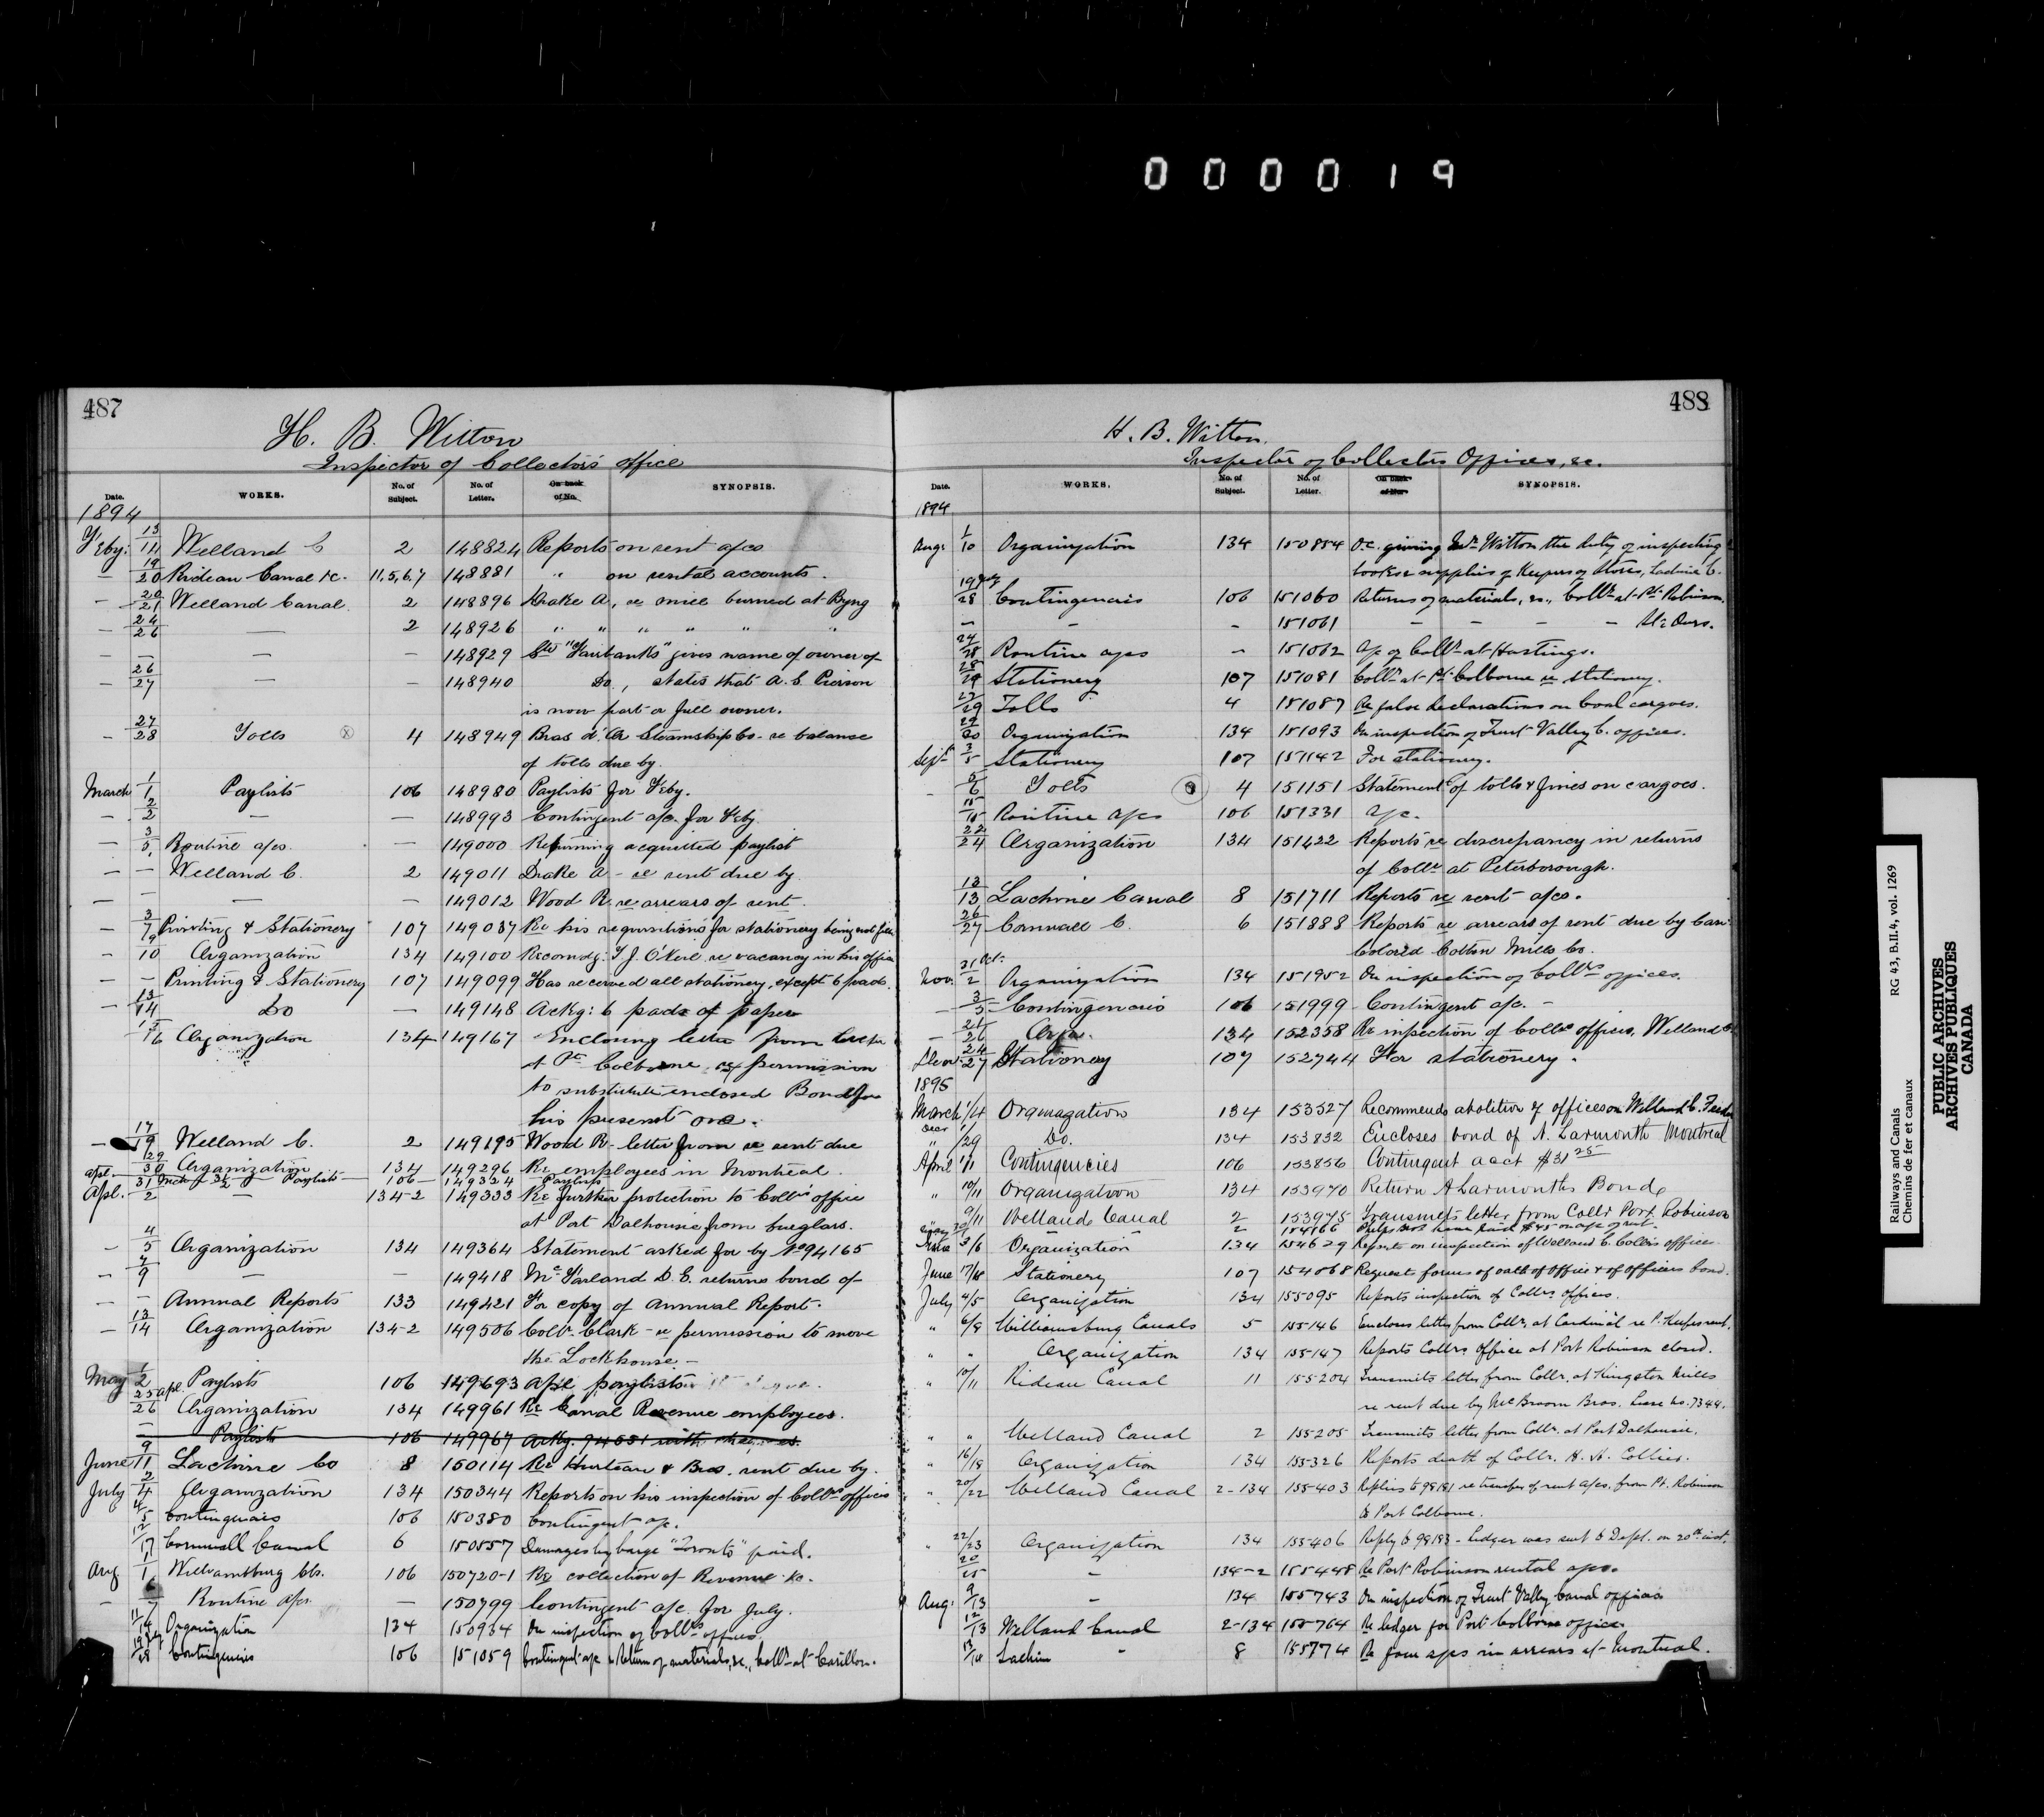 000019
487
H. B. Witton
Inspector of Collector's office
Date. WORKS. No. of Subject. No. of Letter. On back of No. SYNOPSIS.
1894
Feby: 13/14 Welland C 2 148824 Reports on rent a/cs
— 19/20 Rideau Canal &c. 11,5,6,7 148881 " on rental accounts.
— 20/21 Welland Canal. 2 148896 Drake A, re mill burned at Byng
— 24/26 — 2 148926 " " " " " "
— — — — 148929 Str "Fairbanks" gives name of owner of
— 26/27 — — 148940 Do, states that A. C. Pierson
is now part or full owner.
— 27/28 Tolls 4 148949 Bras d'Or Steamship Co. re balance
of tolls due by.
March 1/1 Paylists 106 148980 Paylists for Feby.
— 2/2 — — 148993 Contingent a/c. for Feby.
— 3/5 Routine a/cs. — 149000 Returning acquitted paylist
— — Welland C. 2 149011 Drake A - re rent due by
— — — — 149012 Wood R. re arrears of rent.
— 3/7 Printing & Stationery 107 149037 Re his requisitions for stationery being not
— 9/10 Organization 134 149100 Recomdg: T. J. O'Neil re vacancy in his office
— — Printing & Stationery 107 149099 Has received all stationery, except 6 pads.
— 13/14 Do — 149148 Ackg: 6 pads of paper
16 Organization 134 149167 Enclosing letter from
at Pt Colborne, permission
to substitute enclosed Bond for
his present one.
— 17/19 Welland C. 2 149195 Wood R - letter from re rent due
29/30 Organization 134 149296 Re employees in Montreal.
apl. 31 Paylists 106 149324 Paylists
Apl. 2 — 134-2 149333 Re further protection to Collr's office
at Port Dalhousie from burglars.
— 4/5 Organization 134 149364 Statement asked for by No 94165
— 7/9 — — 149418 McFarland D. E. returns bond of
— — Annual Reports 133 149421 For copy of Annual Report.
— 13/14 Organization 134-2 149506 Collr. Clark - re permission to move
the Lockhouse. —
May 1/2 Paylists 106 149693 Apl paylists
25 apl. /26 Organization 134 149961 Re Canal Revenue employees.
— Paylists 106 149967 Ackg. 94551 with cheques.
June 9/11 Lachine Co 8 150114 Re Hurteau & Bros. rent due by.
July 2/4 Organization 134 150344 Reports on his inspection of Collrs offices
4/5 Contingencies 106 150380 Contingent a/c.
12/17 Cornwall Canal 6 150557 Damages by barge "Toronto" paid.
Aug 1/1 Williamsburg Cls. 106 150720-1 Re collection of Revenue &c.
— 6/7 Routine a/cs. — 150799 Contingent a/c. for July.
11/14 Organization 134 150934 On inspection of Collrs offices
/28 Contingencies 106 151059 Contingent a/c & Return of materials, &c., Collr. at Carillon.
488
H. B. Witton.
Inspector of Collectors Offices, &c.
Date. WORKS. No. of Subject. No. of Letter. On back of No. SYNOPSIS.
1894
Aug: 1/10 Organization 134 150854 O.C. giving Mr. Witton the duty of inspecting
books & supplies of Keepers of Stores, Lachine C.
19 /28 Contingencies 106 151060 Returns of materials, &c., Collr. at Pt. Robinson.
— — — 151061 — — — — St. Ours.
24/28 Routine a/cs — 151062 A/c of Collr. at Hastings.
28/29 Stationery 107 151081 Collr. at Pt. Colborne re stationery.
27/29 Tolls 4 151087 Re false declarations on Coal cargoes.
29/30 Organization 134 151093 On inspection of Trent Valley C. offices.
Sept 3/5 Stationery 107 151142 For stationery.
— 5/6 Tolls 4 151151 Statement of tolls & fines on cargoes.
15/15 Routine a/cs 106 151331 a/c.
22/24 Organization 134 151422 Reports re discrepancy in returns
of Collr. at Peterborough.
13/13 Lachine Canal 8 151711 Reports re rent a/cs.
26/27 Cornwall C. 6 151888 Reports re arrears of rent due by Can.
Colored Cotton Mills Co.
Nov. 31 Oct./2 Organization 134 151952 On inspection of Collrs offices.
— 3/5 Contingencies 106 151999 Contingent a/c. —
— 24/26 Orgn. 134 152358 Re inspection of Collrs offices, Welland C.
Decr. 24/27 Stationery 107 152744 For stationery.
1895
March 1/4 Organization 134 153527 Recommends abolition of offices on Welland C. Feeder
" /29 Do. 134 153832 Encloses bond of A. Larmonth Montreal
April 1/1 Contingencies 106 153856 Contingent acct $31 25
" 10/11 Organization 134 153970 Return A Larmonths Bond
9/11 Welland Canal 2 153975 Transmits letter from Collr Port Robinson
2 154166 Phelps Bros have paid $45 on a/c of rent.
3/6 Organization 134 154629 Reports on inspection of Welland C. Collrs office.
June 17/18 Stationery 107 154868 Request forms of oath of Office & of officers bond.
July 4/5 Organization 134 155095 Reports inspection of Collrs offices.
" 6/8 Williamsburg Canals 5 155146 Encloses letter from Collr. at Cardinal re
" " Organization 134 155147 Reports Collrs office at Port Robinson closed.
" 10/11 Rideau Canal 11 155204 Transmits letter from Collr. at Kingston Mills
re rent due by McBroom Bros. Lease No. 7344.
" " Welland Canal 2 155205 Transmits letter from Collr. at Port Dalhousie.
" 16/18 Organization 134 155326 Reports death of Collr. H. H. Collier.
" 20/22 Welland Canal 2-134 155403 Replies to 98181 re transfer of rent a/cs. from Pt. Robinson
to Port Colborne.
" 22/23 Organization 134 155406 Reply to 98183 - Ledger was sent to Dept. on 20th inst.
20/25 — 134-2 155448 Re Port Robinson rental a/cs.
Aug: 9/13 — 134 155743 On inspection of Trent Valley Canal offices
12/13 Welland Canal 2-134 155764 Re ledger for Port Colborne office.
13/14 Lachine " 8 155774 Re four a/cs in arrears at Montreal.
Railways and Canals
Chemins de fer et canaux
RG 43, B.II.4, vol. 1269
PUBLIC ARCHIVES
ARCHIVES PUBLIQUES
CANADA